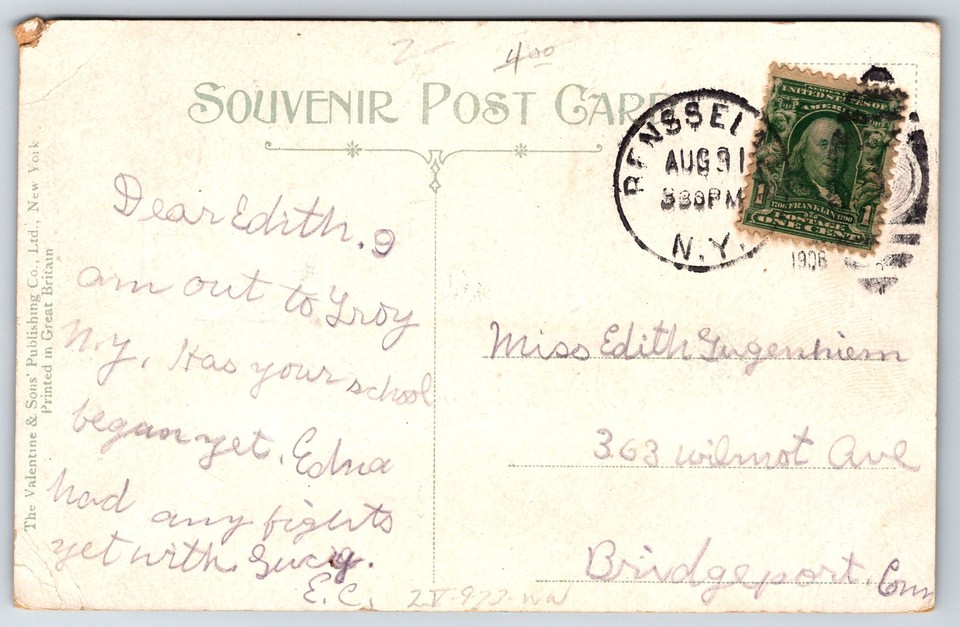 4.00
SOUVENIR POST CARD
RENSSEL
AUG 31
PM
N.Y.
1908
UNITED STATES OF
AMERICA
1 1
1706 FRANKLIN 1790
POSTAGE
ONE CENT
The Valentine & Sons' Publishing Co., Ltd., New York
Printed in Great Britain
Dear Edith. I
am out to Troy
N.Y. Has your school
began yet. Edna
had any fights
yet with
E.C.
Miss Edith Gugenhiem
363 Wilmot Ave
Bridgeport. Conn